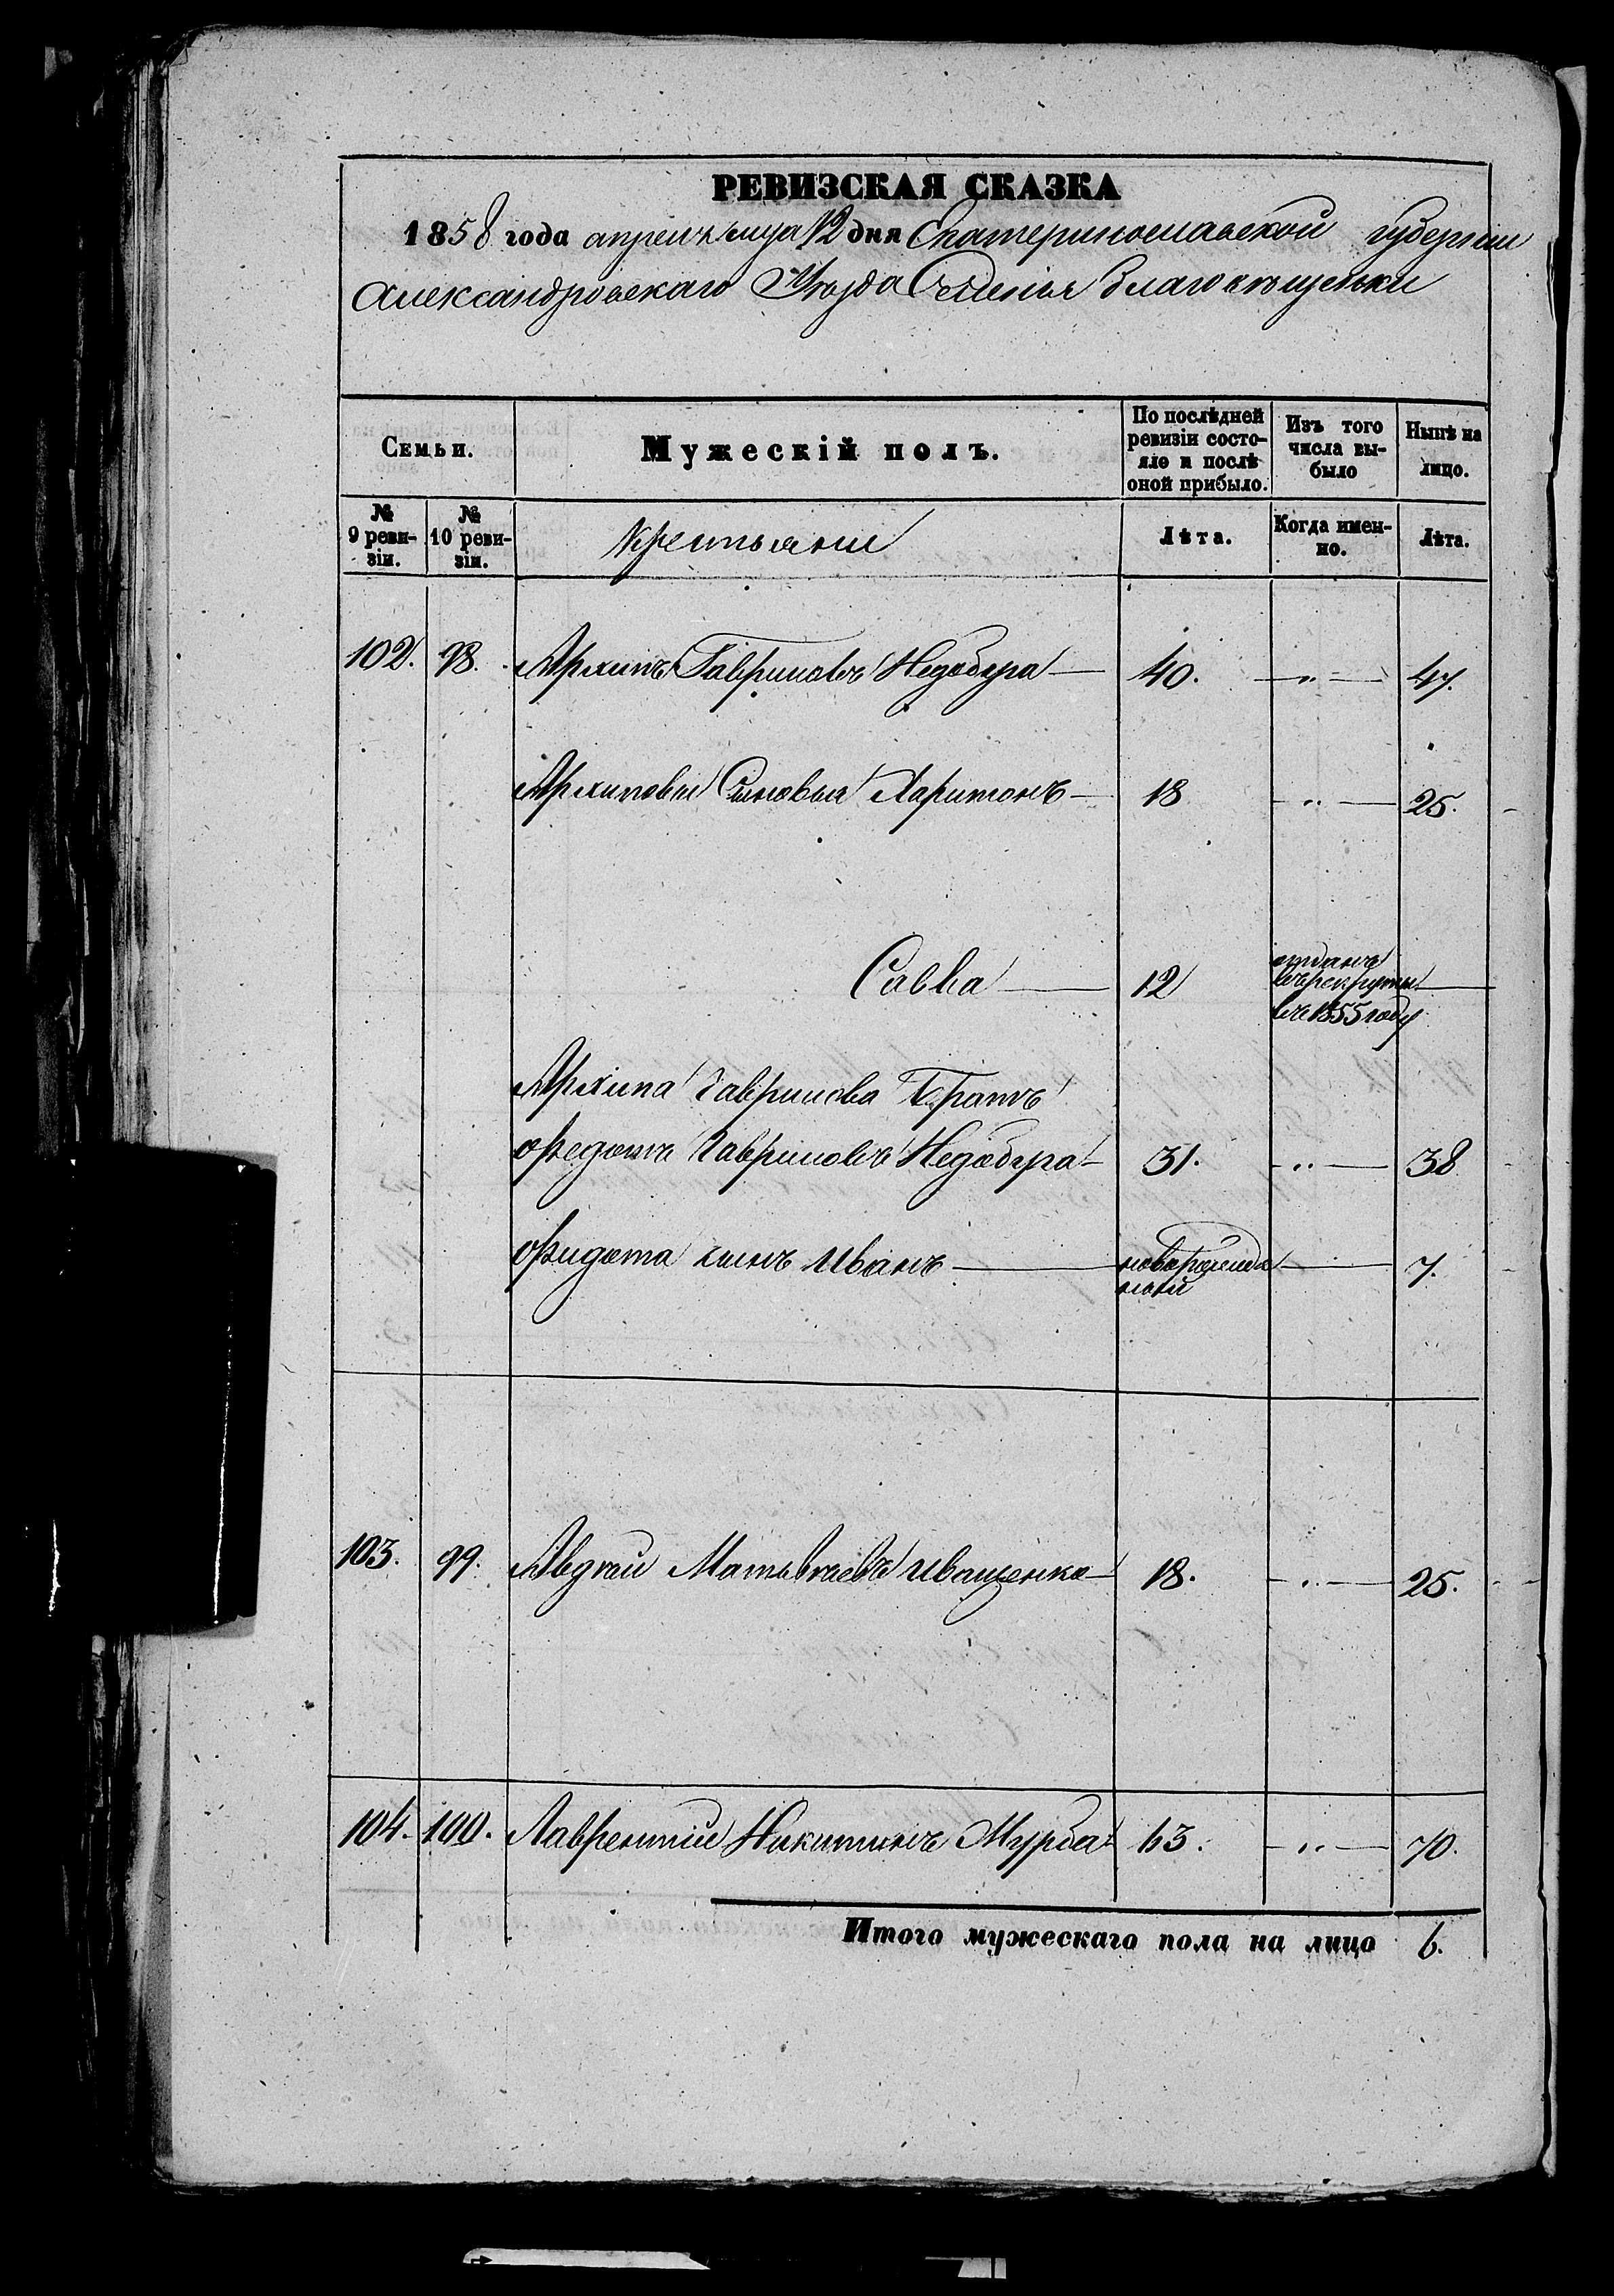 РЕВИЗСКАЯ СКАЗКА
1858 года апреля мца 12 дня Екатеринославской губернии
Александровскаго Уезда Селенья Благовещенки
Семьи.
Мужескій полъ.
По послѣдней ревизіи состояло и послѣ оной прибыло.
Изъ того числа выбыло
Нынѣ на лицо.
№ 9 ревизіи.
№ 10 ревизіи.
Крестьяни
Лѣта.
Когда именно.
Лѣта.
102. 98. Архипъ Гавриловъ Недобура 40. „ 47.
Архиповы Сыновья Харитонъ 18 „ 25.
Савва 12 отданъ
въ рекруты
въ 1855 году
Архипа Гаврилова Братъ
Федотъ Гавриловъ Недобура 31. „ 38
Фидота сынъ Иванъ новорожден
ный 7.
103. 99. Авдѣй Матвѣевъ Иващенко 18. „ 25.
104. 100. Лаврентій Никитинъ Мурва 63. „ 70.
Итого мужескаго пола на лицо 6.